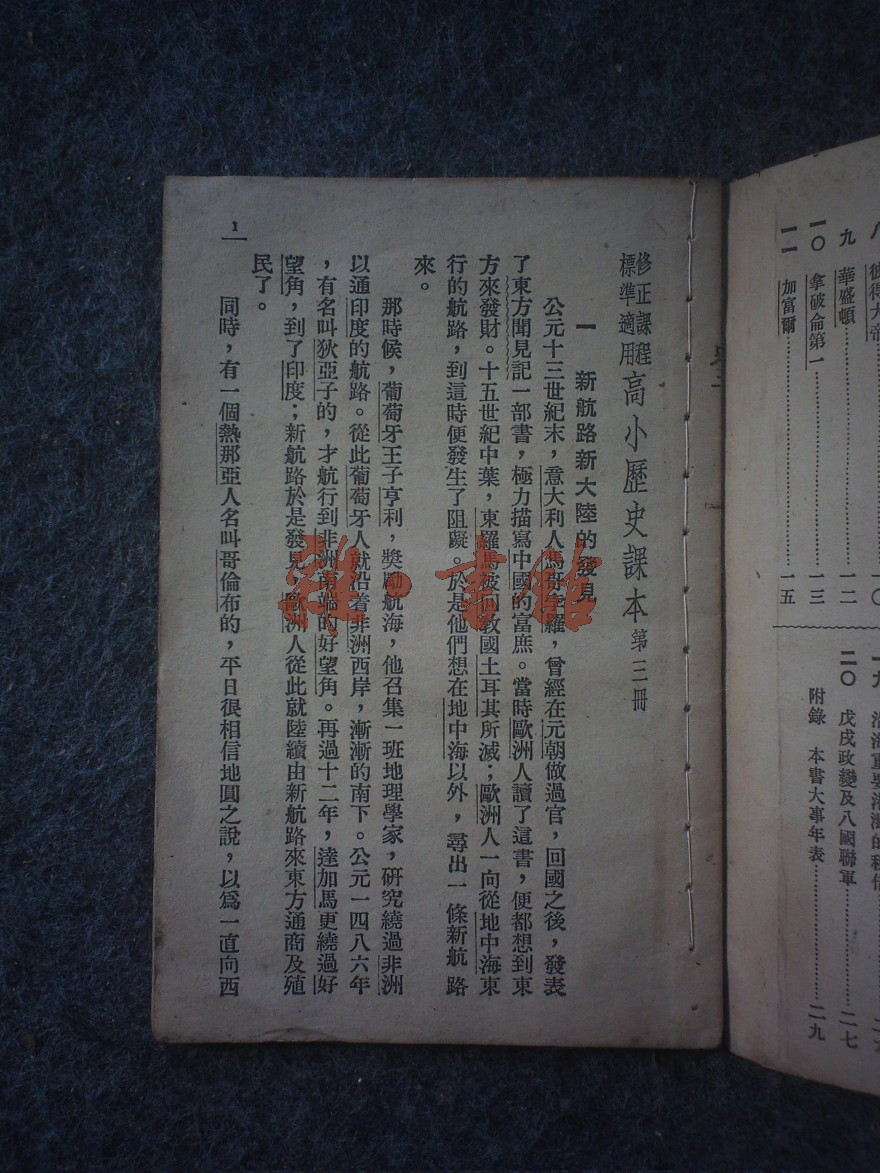 八 彼得大帝……一〇
九 華盛頓……一二
一〇 拿破侖第一……一三
一一 加富爾……一五
二〇 戊戌政變及八國聯軍……二七
附錄 本書大事年表……二九
修正課程標準適用 高小歷史課本 第三冊
一 新航路新大陸的發見
公元十三世紀末，意大利人馬哥孛羅，曾經在元朝做過官，回國之後，發表
了東方聞見記一部書，極力描寫中國的富庶。當時歐洲人讀了這書，便都想到東
方來發財。十五世紀中葉，東羅馬被回教國土耳其所滅；歐洲人一向從地中海東
行的航路，到這時便發生了阻礙。於是他們想在地中海以外，尋出一條新航路
來。
那時候，葡萄牙王子亨利，獎勵航海，他召集一班地理學家，研究繞過非洲
以通印度的航路。從此葡萄牙人就沿着非洲西岸，漸漸的南下。公元一四八六年
，有名叫狄亞子的，才航行到非洲南端的好望角。再過十二年，達加馬更繞過好
望角，到了印度；新航路於是發見，歐洲人從此就陸續由新航路來東方通商及殖
民了。
同時，有一個熱那亞人名叫哥倫布的，平日很相信地圓之說，以爲一直向西
1
雜·書館